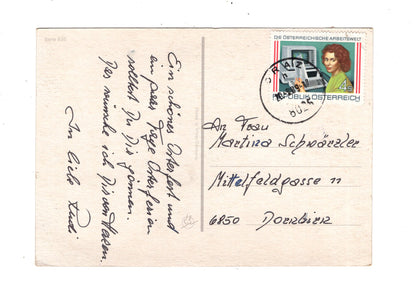 Serie 836
Ein schönes Osterfest und
ein paar Tage Osterferien
solltest Du Dir gönnen.
Das wünsche ich Dir von Herzen.
In Liebe Rudi
DIE ÖSTERREICHISCHE ARBEITSWELT
REPUBLIK ÖSTERREICH
GRAZ
8024
An Frau
Martina Schwärzler
Mittelfeldgasse 11
6850 Dornbirn